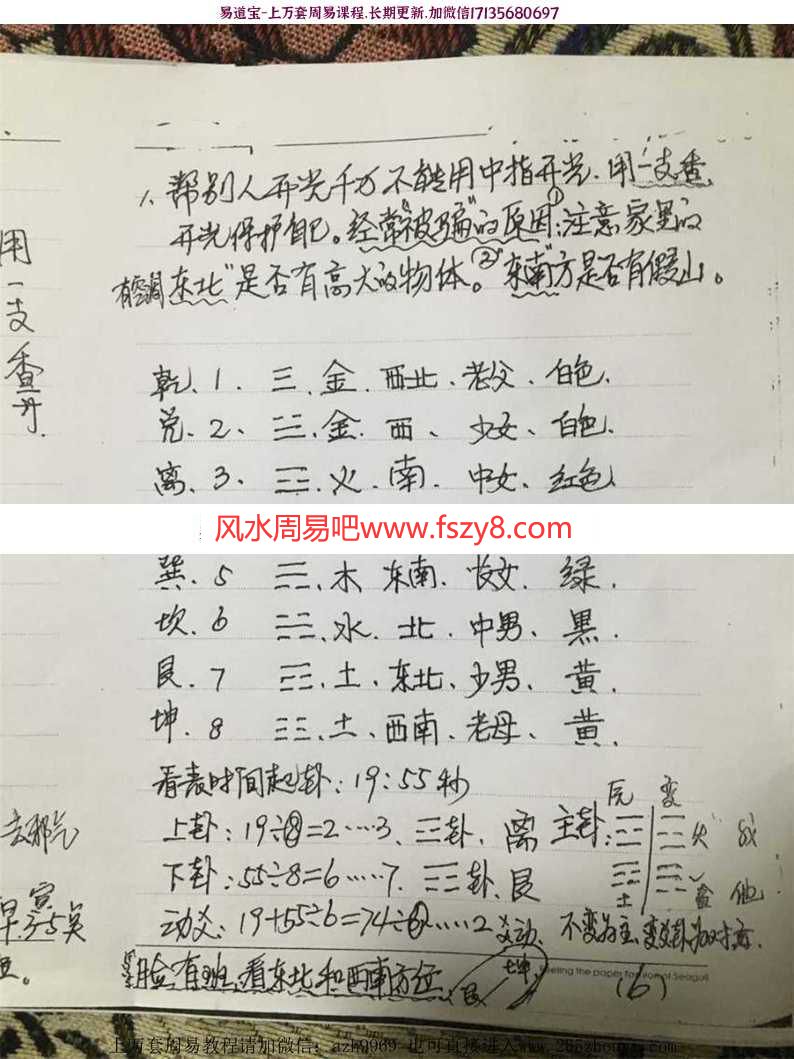 易道宝-上万套周易课程.长期更新.加微信17135680697
1. 帮别人开光千万不能用中指开光. 用一支香.
开光保护自己。经常"被骗"的原因:①注意家里的
东北"是否有高大的物体。②"东南"方是否有假山。
有空调
用一支香开.
乾、1. 三、金. 西北. 老父、白色.
兑. 2、☱、金. 西、少女、白色.
离、3、☲、火、南. 中女、红色
风水周易吧www.fszy8.com
巽. 5 ☴、木 东南. 长女. 绿.
坎. 6 ☵、水. 北. 中男、黑.
艮. 7 ☶、土、东北、少男、黄.
坤. 8 ☷、土、西南、老母、黄.
看表时间起卦: 19:55秒
上卦: 19÷8=2…3. ☲卦. 离 主卦:
下卦: 55÷8=6……7. ☶卦. 艮
动爻: 19+55÷6=74÷6……2爻动. 不变为主, 变爻卦为对方.
脸有斑, 看东北和西南方位
艮 坤
元 变
火 我
土 金 他
去邪气
(6)
上万套周易教程请加微信: azh0969 也可直接进入www.265zhouyi.com